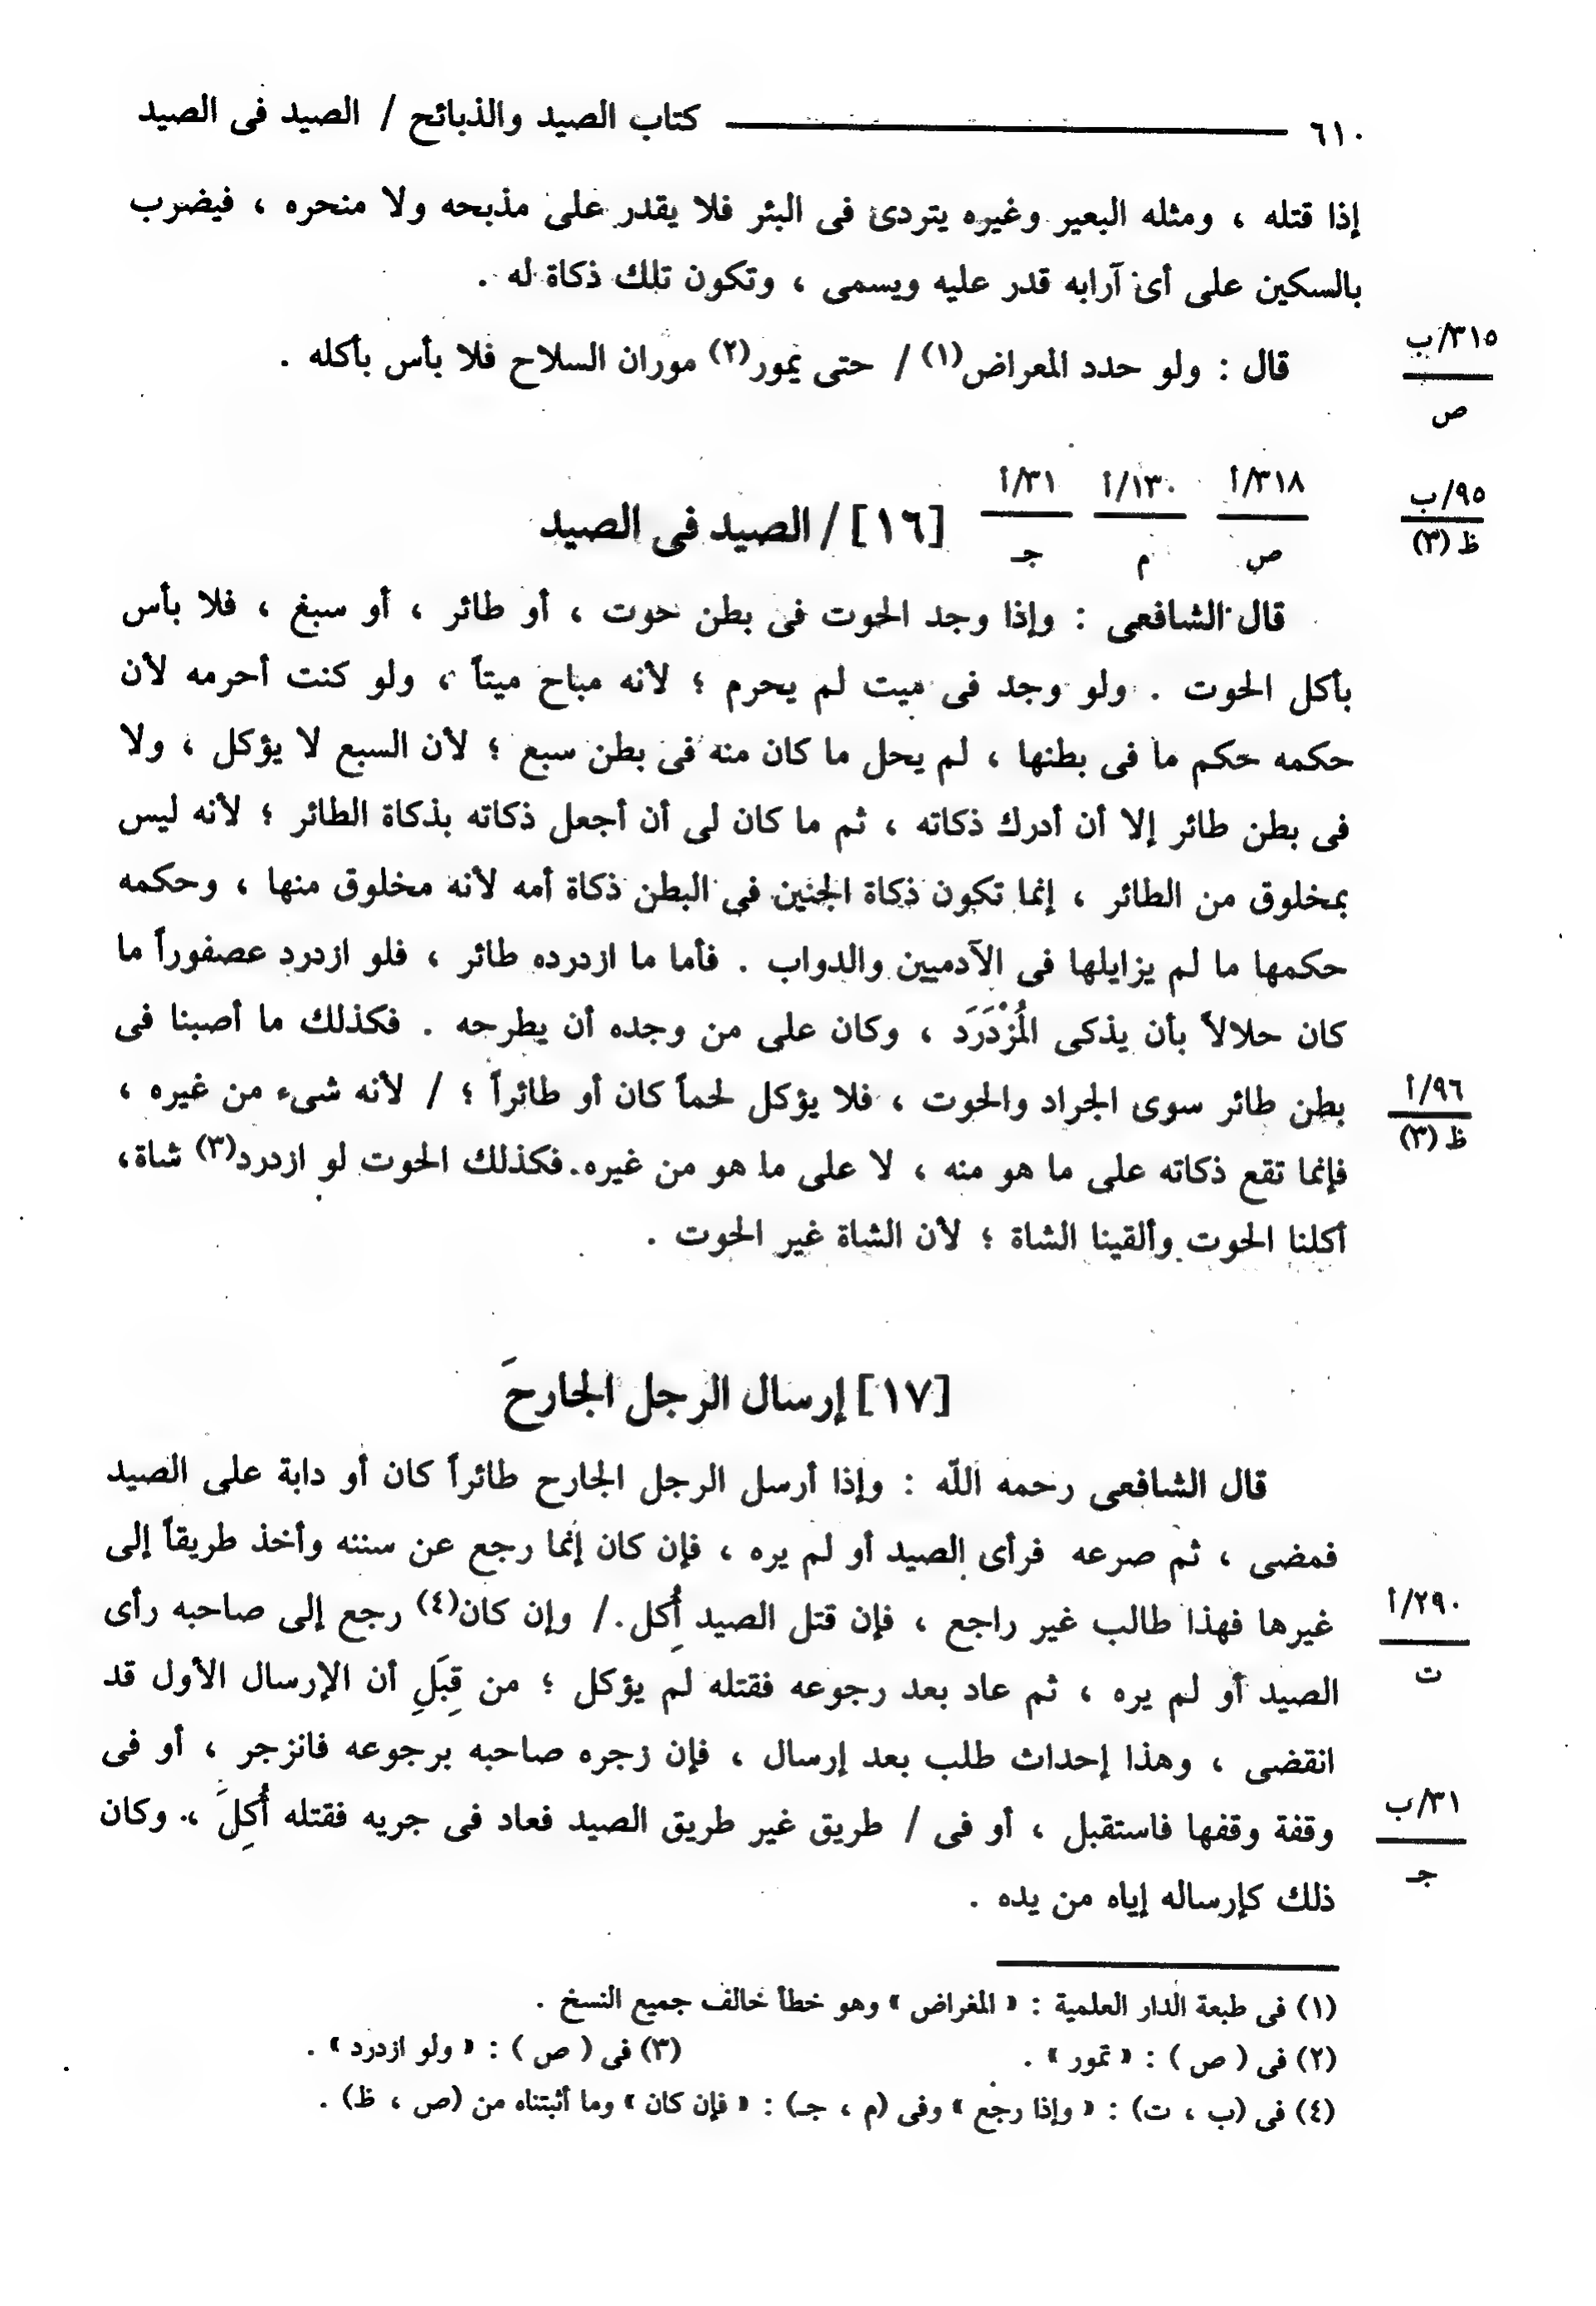 ٦١٠ كتاب الصيد والذبائح / الصيد فى الصيد
إذا قتله ، ومثله البعير وغيره يتردى فى البئر فلا يقدر على مذبحه ولا منحره ، فيضرب
بالسكين على أى آرابه قدر عليه ويسمى ، وتكون تلك ذكاة له .
قال : ولو حدد المعراض(١) / حتى يمور(٢) موران السلاح فلا بأس بأكله .
٣١٥/ب
ص
[١٦] / الصيد فى الصيد
٣١٨/أ
ص
١٣٠/أ
م
٣١/أ
جـ
٩٥/ب
ظ (٣)
قال الشافعى : وإذا وجد الحوت فى بطن حوت ، أو طائر ، أو سبغ ، فلا بأس
بأكل الحوت . ولو وجد فى ميت لم يحرم ؛ لأنه مباح ميتاً ، ولو كنت أحرمه لأن
حكمه حكم ما فى بطنها ، لم يحل ما كان منه فى بطن سبع ؛ لأن السبع لا يؤكل ، ولا
فى بطن طائر إلا أن أدرك ذكاته ، ثم ما كان لى أن أجعل ذكاته بذكاة الطائر ؛ لأنه ليس
بمخلوق من الطائر ، إنما تكون ذكاة الجنين فى البطن ذكاة أمه لأنه مخلوق منها ، وحكمه
حكمها ما لم يزايلها فى الآدميين والدواب . فأما ما ازدرده طائر ، فلو ازدرد عصفوراً ما
كان حلالاً بأن يذكى المُزْدَرَد ، وكان على من وجده أن يطرحه . فكذلك ما أصبنا فى
بطن طائر سوى الجراد والحوت ، فلا يؤكل لحماً كان أو طائراً ؛ / لأنه شىء من غيره ،
٩٦/أ
ظ (٣)
فإنما تقع ذكاته على ما هو منه ، لا على ما هو من غيره. فكذلك الحوت لو ازدرد(٣) شاة،
أكلنا الحوت وألقينا الشاة ؛ لأن الشاة غير الحوت .
[١٧] إرسال الرجل الجارحَ
قال الشافعى رحمه اللّه : وإذا أرسل الرجل الجارح طائراً كان أو دابة على الصيد
فمضى ، ثم صرعه فرأى الصيد أو لم يره ، فإن كان إنما رجع عن سننه وأخذ طريقاً إلى
غيرها فهذا طالب غير راجع ، فإن قتل الصيد أُكِل . / وإن كان(٤) رجع إلى صاحبه رأى
٢٩٠/أ
ت
الصيد أو لم يره ، ثم عاد بعد رجوعه فقتله لم يؤكل ؛ من قِبَلِ أن الإرسال الأول قد
انقضى ، وهذا إحداث طلب بعد إرسال ، فإن زجره صاحبه برجوعه فانزجر ، أو فى
وقفة وقفها فاستقبل ، أو فى / طريق غير طريق الصيد فعاد فى جريه فقتله أُكِلَ ، وكان
٣١/ب
جـ
ذلك كإرساله إياه من يده .
(١) فى طبعة الدار العلمية : « المغراض » وهو خطأ خالف جميع النسخ .
(٢) فى ( ص ) : « تمور » . (٣) فى ( ص ) : « ولو ازدرد » .
(٤) فى (ب ، ت) : « وإذا رجع » وفى (م ، جـ) : « فإن كان » وما أثبتناه من (ص ، ظ) .